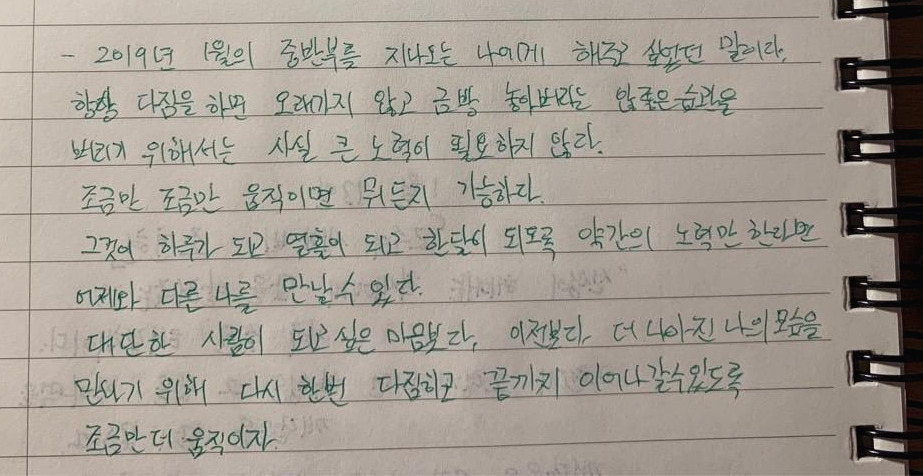 - 2019년 1월의 중반부를 지나오는 나에게 해주고 싶었던 말이다.
항상 다짐을 하면 오래가지 않고 금방 놓아버리는 안좋은 습관을
버리기 위해서는 사실 큰 노력이 필요하지 않다.
조금만 조금만 움직이면 뭐든지 가능하다.
그것이 하루가 되고 열흘이 되고 한달이 되도록 약간의 노력만 한다면
어제와 다른 나를 만날 수 있다.
대단한 사람이 되고 싶은 마음보다, 이전보다 더 나아진 나의 모습을
만나기 위해 다시 한번 다짐하고 끝까지 이어나갈수있도록
조금만 더 움직이자.